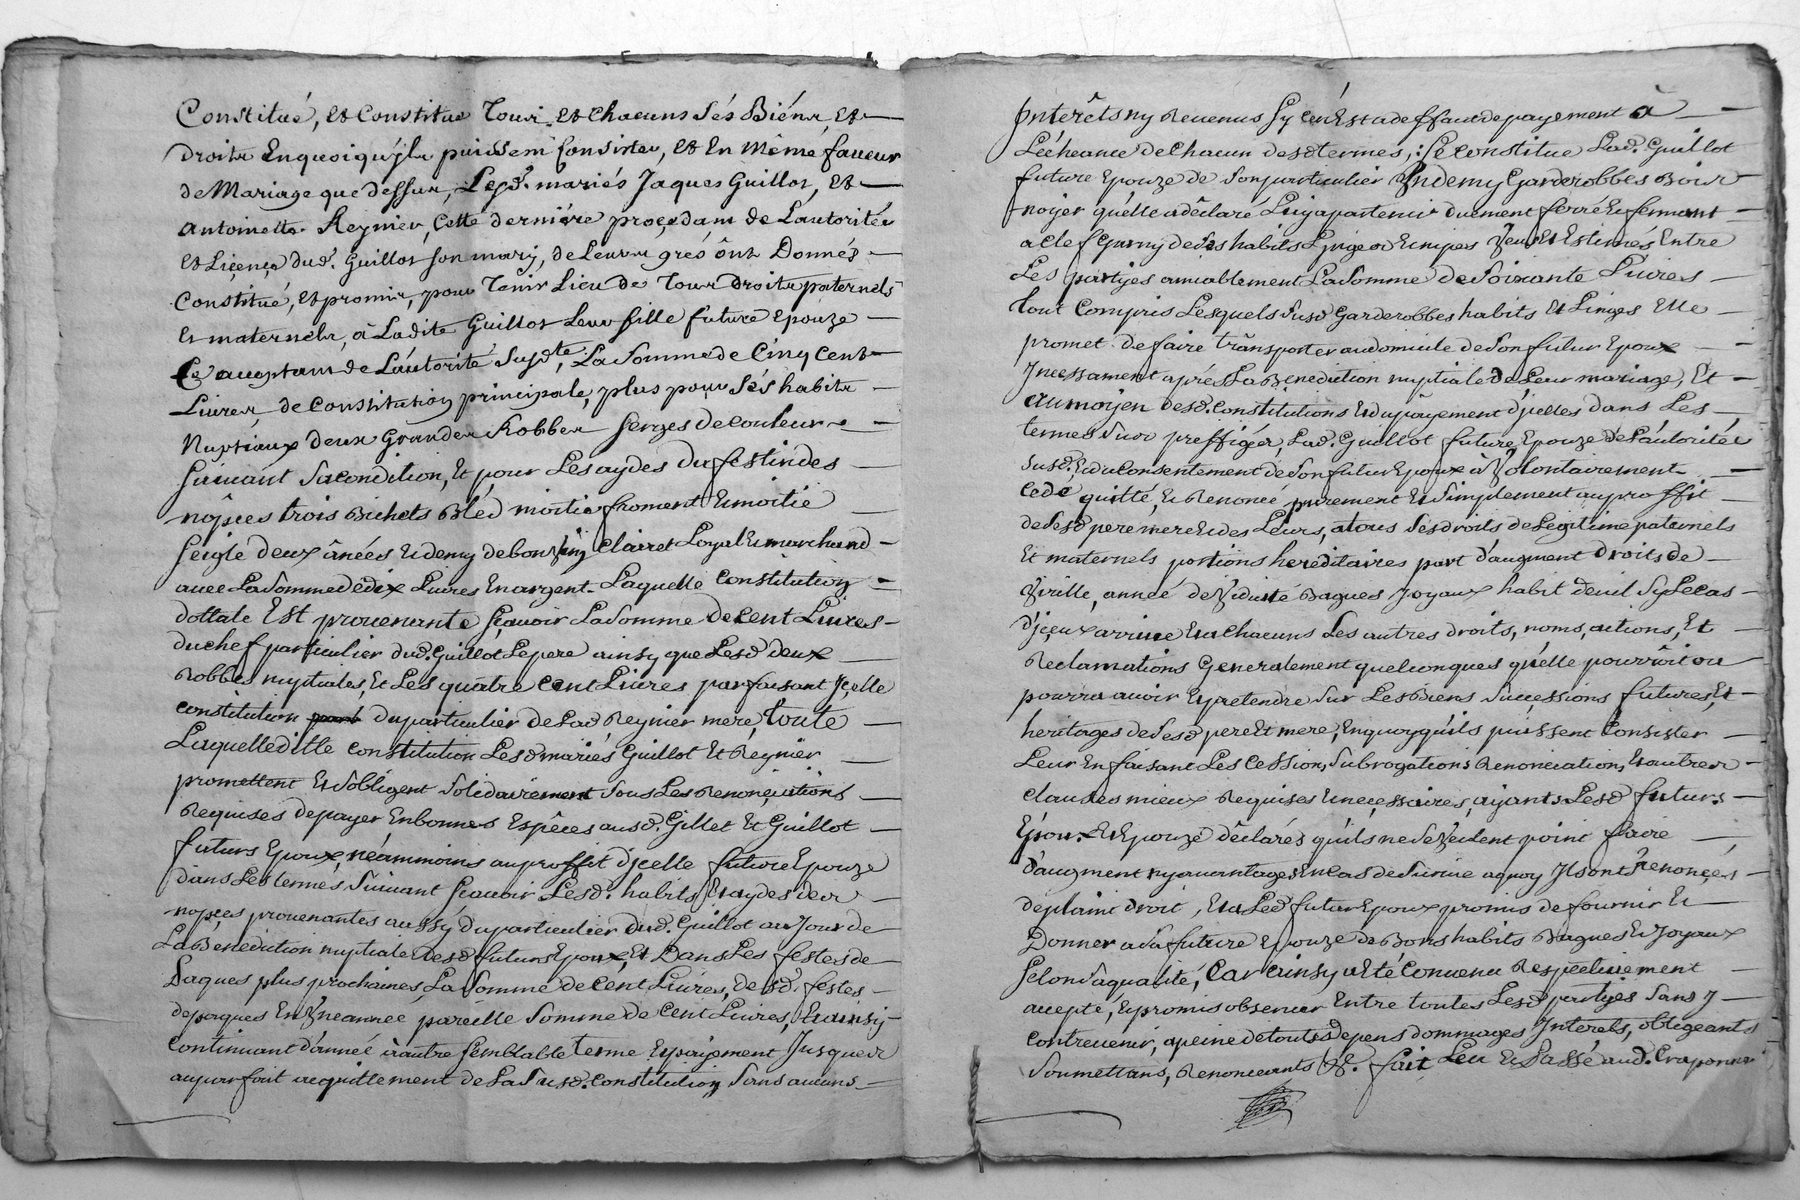 Constitué, et Constitue Tous et chacuns sés Biéns, et
droits Enquoiqu'jls puissent Consister, et En Même faueur
de Mariage que dessus, Lesd.s mariés Jaques Guillot, et
antoinette Reynier, Cette derniére proçedant de L'autorité
et Liçençe dud. Guillot son mary, de Leurs grés ônt Donnés
Constitué, et promis, pour Tenir Lieu de Tous droits paternels
et maternels, à Ladite Guillot Leur fille future Epouze
Ce acceptant de L'autorité Susdte, La Somme de Cinq Cent
Liures, de Constitution principale, plus pour sés habits
Nuptiaux deux Grandes Robbes serges de couleur
suiuant sa condition, et pour Les aydes du festin des
nopçes trois Bichets Bléd moitié froment et moitié
seigle deux ânées et demy de bon vin Clairet Loyal et marchand
auec La Somme de dix Liures En argent Laquelle Constitution
dottale Est prouenante sçauoir La Somme de cent Liures
du chef particulier dud. Guillot Le pere ainsy que Lesd deux
Robbes nuptiales, et Les quatre Cent Liures parfaisant Jçelle
constitution du particulier de Lad Reynier mere, toute
Laquelle ditte constitution Lesd mariés Guillot et Reynier
promettent et s'obligent solidairement sous Les Renonçiations
Requises de payer En bonnes Espêces ausd. Gillet et Guillot
futurs Epoux, néammoins au proffit d'jcelle future Epouze
dans Les termes suiuant sçauoir Lesd. habits et aydes des
nopçes prouenantes aussy du particulier dud. Guillot au Jour de
La Benediction nuptiale desd futurs Epoux, et Dans Les festes de
Paques plus prochaines La somme de Cent Liures, desd. festes
de paques En vne année pareille Somme de Cent Liures, et ainsy
Continuant d'année à autre semblable terme et payement Jusques
au parfait acquittement de La Susd. Constitution, sans aucuns
Jnterêts ny Reuenus sy çe n'Est a deffaut de payement à
L'écheance de Chacun desd termes, Se constitue Lad. Guillot
future Epouze de son particulier vn demy Garderobbes Bois
noyer qu'elle a déclaré Luy apartenir duement ferré et fermant
a Clef Garny de ses habits Linge et nipes veu et Estimés Entre
Les partyes amiablement La somme de Soixante Liures
tout Compris Lesquels Susd Garderobbes habits et Linges Elle
promet de faire trânsporter au domicile de Son futur Epoux
Jncessament aprés La Benediction nuptiale de Leur mariage, Et
au moyen desd. Constitutions et du pâyement d'jcelles dans Les
termes sus preffigés, Lad. Guillot future Epouze de L'autorité
susd. et du Consentement de Son futur Epoux à volontairement
Cedé quitté, et Renoncé purement et simplement au proffit
de Sesd pere mere et des Leurs, a tous sés droits de Legitime paternels
Et maternels portions hereditaires part d'augment droits de
virille, année de viduité Bagues Joyaux habit deuil sy Le cas
d'jçeux arriue et a chacuns Les autres droits, noms, actions, Et
Reclamations Generalement quelconques qu'elle pourrôit ou
pourra auoir et pretendre sur Les Biens Successions futures, et
heritages de Sesd pere Et mere, En quoy qu'ils puissent Consister
Leur En faisant Les Cession, Subrogations Renonciation, et autres
Clauses mieux Requises et neçessaires, ayants Lesd futurs
Epoux et Epouze déclarés qu'ils ne se veulent point faire
d'augment ny auantages En Cas de Suruie a quoy Jls ont renonçés
de plaint droit, et a Led futur Epoux promis de fournir et
Donner a Sa future Epouze de Bons habits Bagues et Joyaux
selon sa qualité, Car ainsy a Eté Conuenu Respectiuement
accepté, et promis obseruer Entre toutes Lesd partyes sans y
contreuenir, a peine de touts depens dommages Jnterets, obligeants
Soumettans, Renonceants &. fait Leu et Passé aud. Craponne